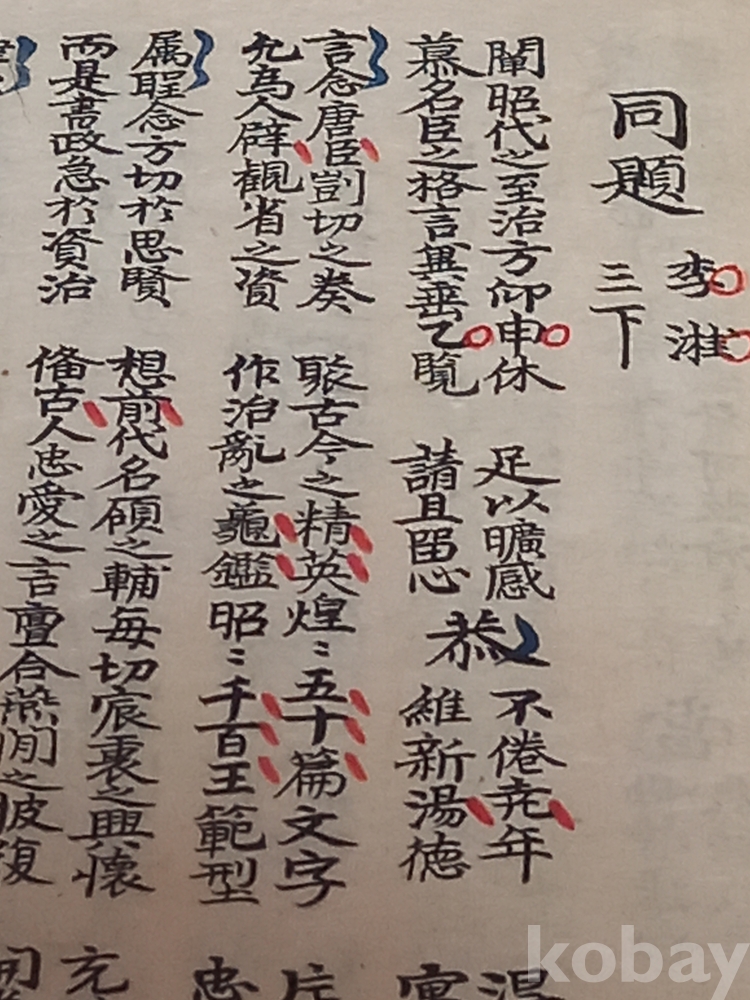 同題 李漼
三下
闡昭代之至治方仰申休 足以曠感
慕名臣之格言兾垂乙覧 請且留心
恭
不倦尭年
維新湯德
言念唐臣剴切之奏 聚古今之精英煌〻五十篇文字
允爲人辟觀省之資 作治亂之龜鑑昭〻千百王範型
忠
属聖念方切於思賢 想前代名碩之輔每切宸衷之興懷
而是書政急於資治 備古人忠愛之言亶合燕閒之披復
充
kobay